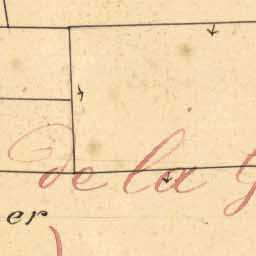 de la G
er